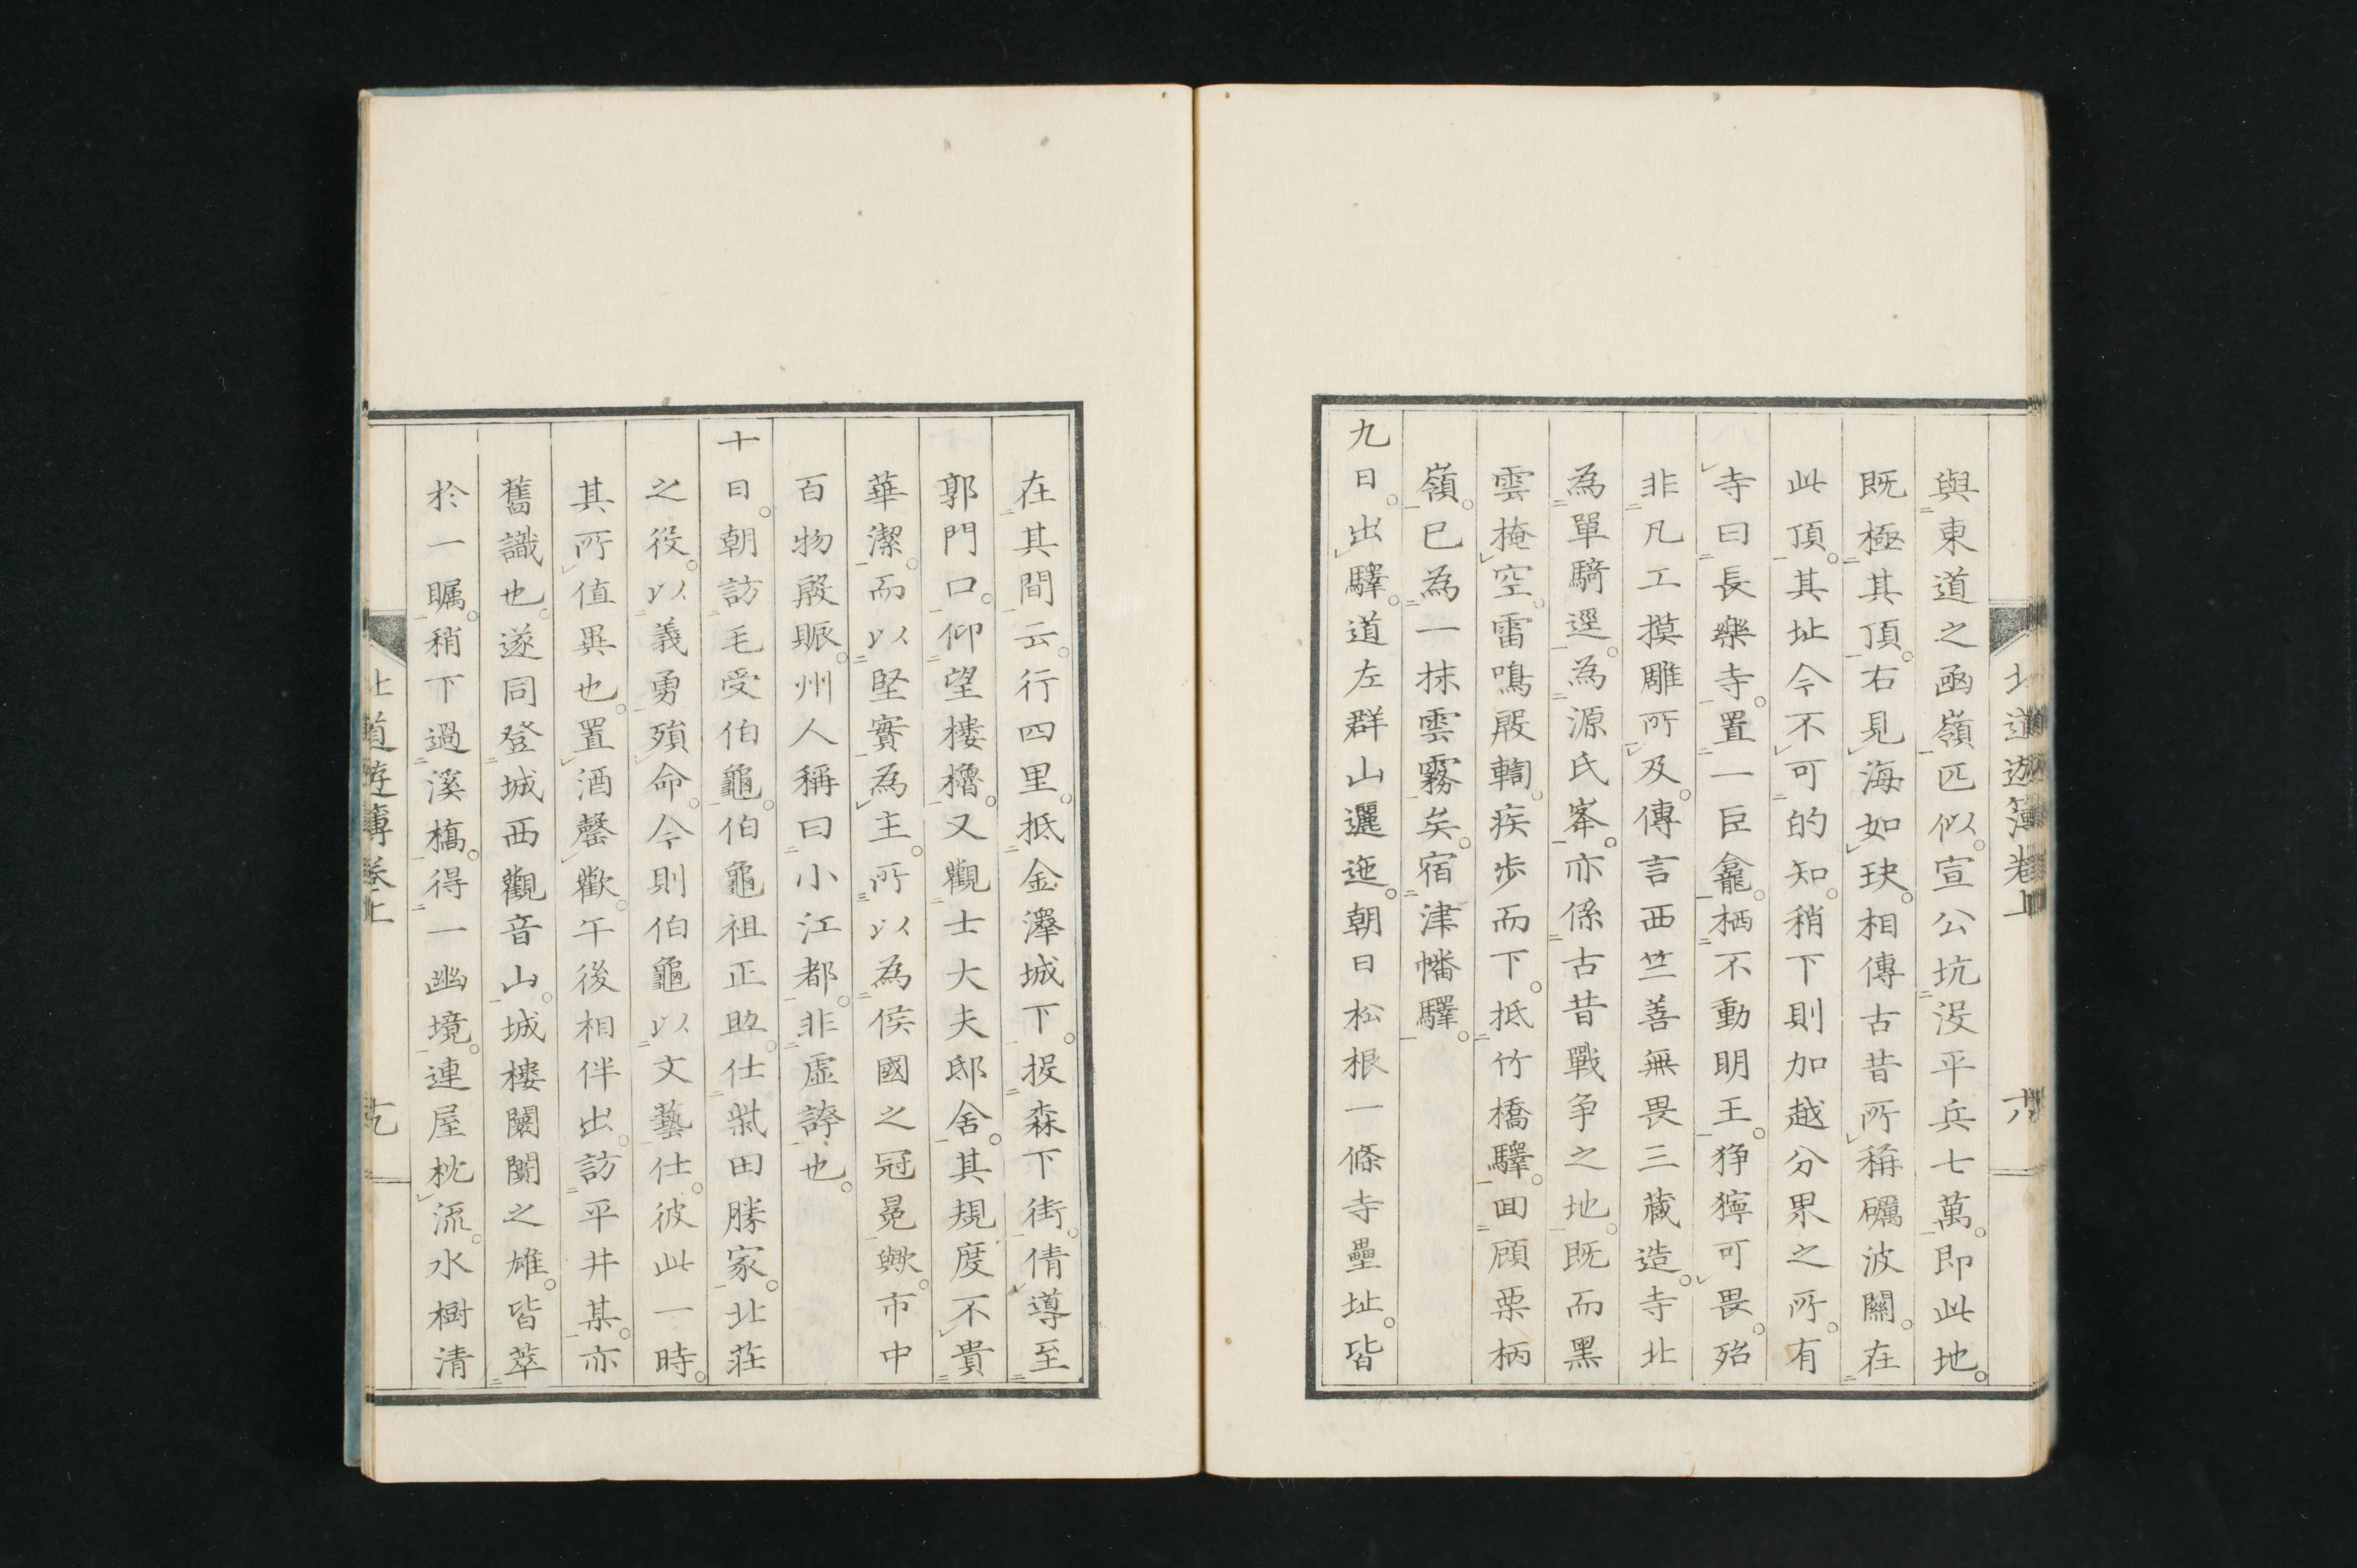 與東道之函嶺匹似。宣公坑没平兵七萬。即此地。
既極其頂。右見海如玦。相傳古昔所稱礪波關。在
此頂。其址今不可的知。稍下則加越分界之所。有
寺曰長樂寺。置一巨龕。栖不動明王。猙獰可畏。殆
非凡工摸雕所及。傳言西竺善無畏三蔵造。寺北
為單騎逕。為源氏峯。亦係古昔戰争之地。既而黑
雲掩空。雷鳴殷輷。疾歩而下。抵竹橋驛。回顧栗柄
嶺。已為一抹雲霧矣。宿津幡驛。
九日。出驛。道左群山邐迤。朝日松根一條寺壘址。皆
北道遊簿卷上
在其間云。行四里。抵金澤城下。投森下街。倩導至
郭門口。仰望樓櫓。又觀士大夫邸舍。其規度不貴
華潔。而以堅實為主。所以為侯國之冠冕歟。市中
百物殷賑。州人稱曰小江都。非虚誇也。
十日。朝訪毛受伯龜。伯龜祖正助。仕柴田勝家。北荘
之役。以義勇殞命。今則伯龜以文藝仕。彼此一時。
其所值異也。置酒罄歡。午後相伴出。訪平井某。亦
舊識也。遂同登城西觀音山。城樓闤闠之雄。皆萃
於一矚。稍下過溪橋。得一幽境。連屋枕流。水樹清
北道遊簿卷上